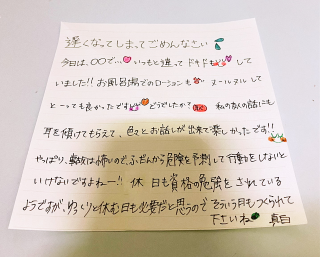 遅くなってしまってごめんなさい
今日は、〇〇で…いつもと違ってドキドキして
いました!!お風呂場でのローションも ヌールヌルして
とーっても良かったですけどどうでしたか? 私の友人の話にも
耳を傾けてもらえて、色々とお話しが出来て楽しかったです!!
やっぱり、事故は怖いので、ふだんから危険を予測して行動をしないと
いけないですよねー!! 休日も資格の勉強をされている
ようですが、ゆっくりと休む日も必要だと思うので そういう日もつくられて
下さいね 真白